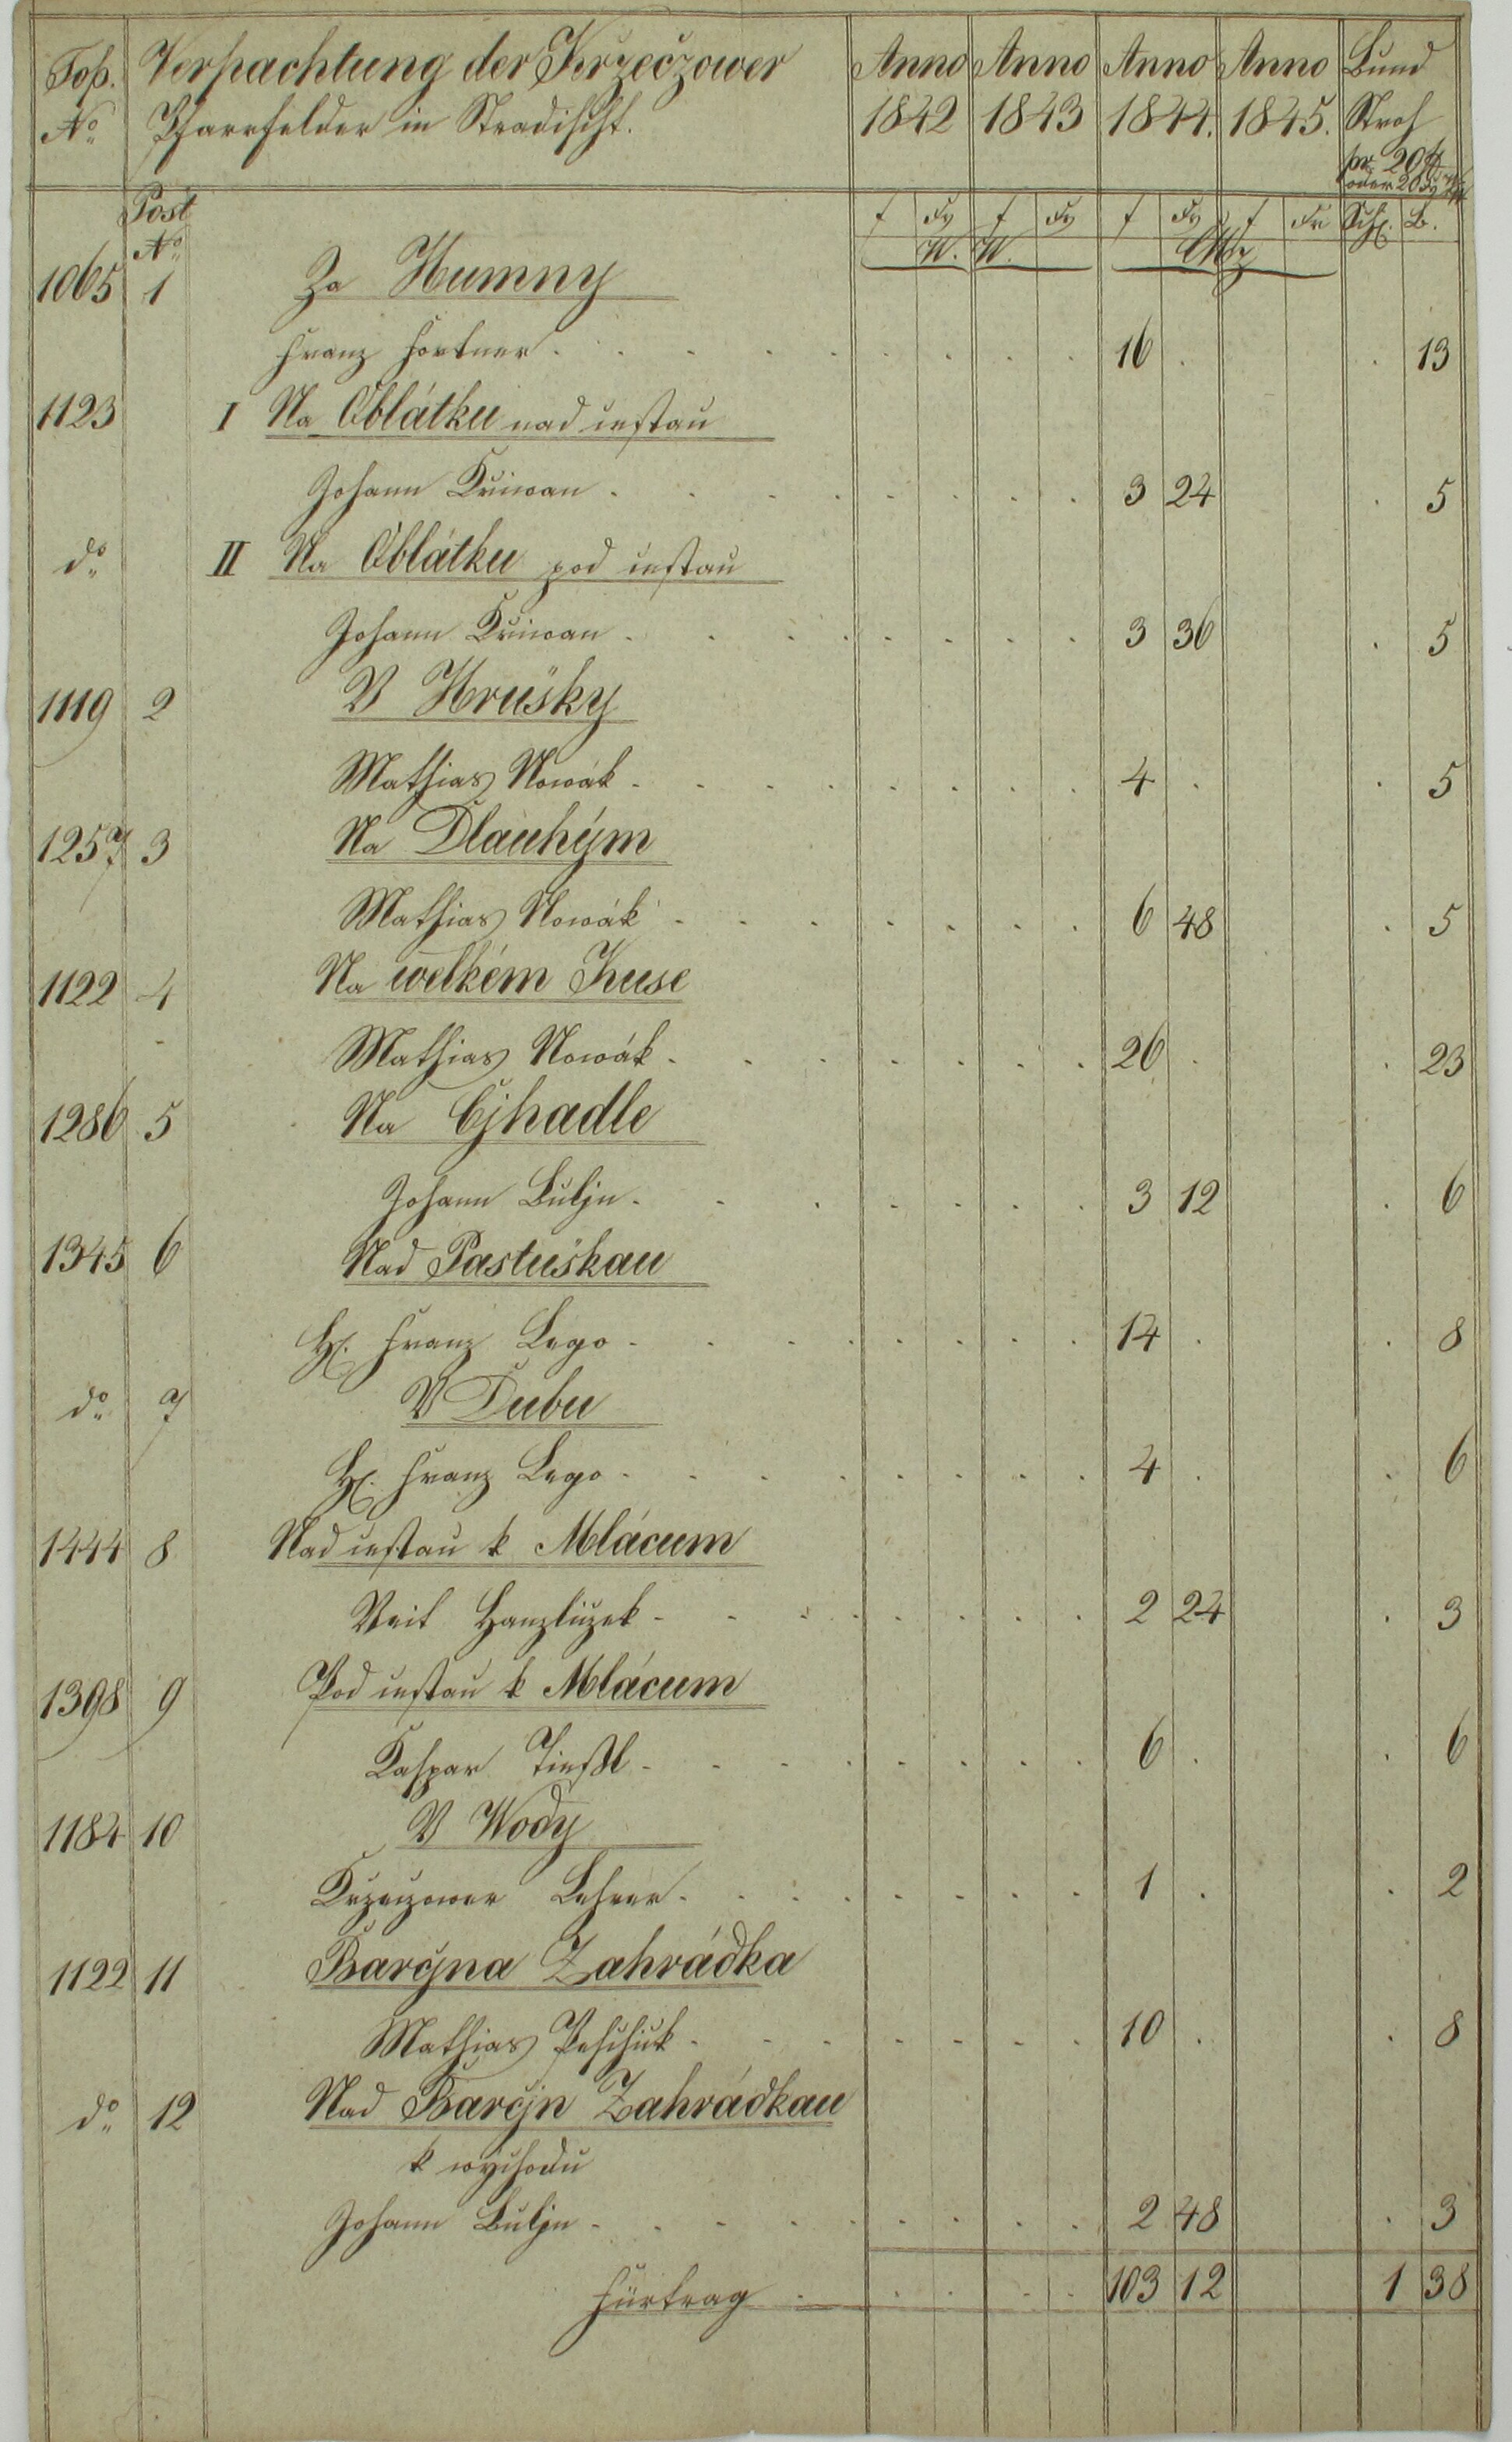 Top. Verpachtung der Krzeczower Anno Anno Anno Anno Bund
No Pfarrfelder in Stradischt. 1842 1843 1844. 1845. Stroh
pr 20 ℔
oder 20
Post f f f f Sch. B.
No W. W. CMz
1065 1 Za Humny
Franz Fortner 16 . . 13
1123 I Na Oblátku nad cestau
Johann Krziwan 3 24 . 5
do II Na Oblátku pod cestau
Johann Krziwan 3 36 . 5
1119 2 V Hrušky
Mathias Nowák 4 . . 5
1257 3 Na Dlauhým
Mathias Nowák 6 48 . 5
1122 4 Na welkém Kuse
Mathias Nowák 26 . . 23
1286 5 Na Cjhadle
Johann Buljn 3 12 . 6
1345 6 Nad Pastuškau
H. Franz Lego 14 . . 8
do 7 V Dubu
H. Franz Lego 4 . . 6
1444 8 Nad cestau k Mlácum
Veit Hanzliczek 2 24 . 3
1398 9 Pod cestau k Mlácum
Kaspar 6 . . 6
1184 10 V Wody
Krzeczower Lehrer 1 . . 2
1122 11 Barčjna Zahrádka
Mathias 10 . . 8
do 12 Nad Barčjn Zahrádkau
k wýchodu
Johann Buljn 2 48 . 3
Fürtrag 103 12 1 38